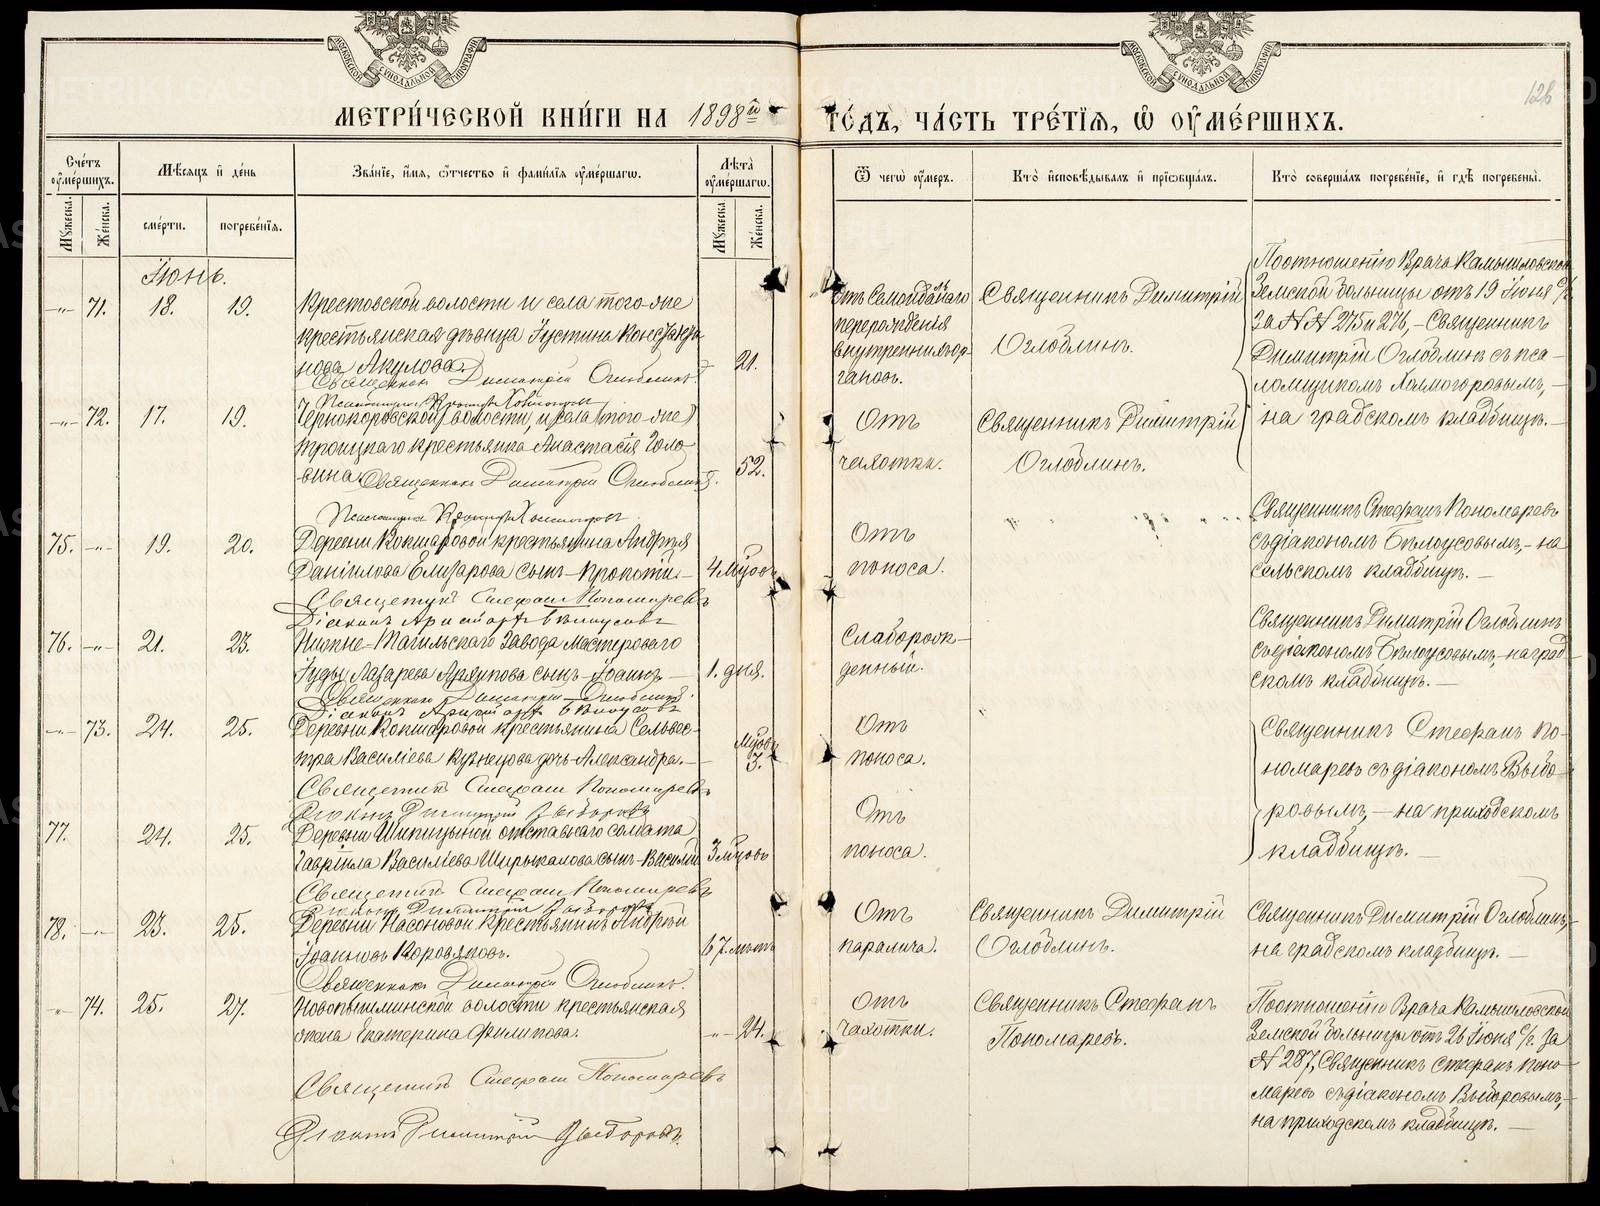 МЕТРИ́ЧЕСКОЙ КНИ́ГИ НА 1898й ГО́ДЪ, ЧА́СТЬ ТРЕ́ТЇѦ, Ѡ ОУ҆МЕ́РШИХЪ.
128
Сче́тъ оу҆ме́ршихъ.
Мѣ́сѧцъ и҆ де́нь
Зва́нїе, и҆́мѧ, ѻ҆́тчество и҆ фами́лїѧ оу҆ме́ршагѡ.
Лѣ́та оу҆ме́ршагѡ.
Ѿ чегѡ̀ оу҆́меръ.
Кто̀ и҆сповѣ́дывалъ и҆ прїѡбща́лъ.
Кто̀ соверша́лъ погребе́нїе, и҆ гдѣ̀ погребены̀.
Мꙋ́жеска. Же́нска.
сме́рти. погребе́нїѧ.
Мꙋ́жеска. Же́нска.
Іюнь.
-"- 71. 18. 19.
Крестовской волости и села того-же
крестьянская дѣвица Іустина Константи
нова Акулова.
21.
Священникъ Димитрій Оглоблинъ.
Псаломщикъ Холмогоровъ
Священникъ Димитрій
Оглоблинъ.
перерожденія
внутреннихъ ор-
гановъ.
По отношенію Врача Камышловской
Земской больницы отъ 19 Іюня с/г.
за №№ 275 и 276, – Священникъ
Димитрій Оглоблинъ съ пса-
ломщикомъ Холмогоровымъ, –
на градскомъ кладбищѣ. –
-"- 72. 17. 19.
волости, и села того-же
Троицкаго крестьянка Анастасія Голо-
вина
52.
Священникъ Димитрій Оглоблинъ.
Псаломщикъ Холмогоровъ
Отъ
чахотки.
Священникъ Димитрій
Оглоблинъ.
75. -"- 19. 20.
Деревни Кокшаровой крестьянина Андрея
Даніилова Елизарова сынъ – Прокопій. –
4 мѣсяц.
Священникъ Стефанъ Пономаревъ
Діаконъ Бѣлоусовъ
Отъ
поноса.
Священникъ Стефанъ Пономаревъ
съ діакономъ Бѣлоусовымъ, – на
сельскомъ кладбищѣ. –
76. -"- 21. 23.
Нижне-Тагильскаго Завода мастероваго
Іуды Лазарева сынъ – Іоаннъ –
1. дня.
Священникъ Димитрій Оглоблинъ.
Діаконъ Бѣлоусовъ
Слаборож-
денный.
Священникъ Димитрій Оглоблинъ
съ діакономъ Бѣлоусовымъ, – на град-
скомъ кладбищѣ. –
-"- 73. 24. 25.
Деревни Кокшаровой крестьянина Сельвес-
тра Василіева Кузнецова дочь Александра. –
мѣсяц. 3.
Священникъ Стефанъ Пономаревъ
Діаконъ Димитрій Выборовъ
Отъ
поноса.
Священникъ Стефанъ По-
номаревъ съ діакономъ Выбо-
ровымъ, – на приходскомъ
кладбищѣ. –
77. 24. 25.
Деревни Шипицыной отставнаго солдата
Гавріила Василіева сынъ – Василій
3 мѣсяц.
Священникъ Стефанъ Пономаревъ
Діаконъ Димитрій Выборовъ
Отъ
поноса.
78. -"- 23. 25.
Деревни Насоновой крестьянинъ Андрей
Іоанновъ Коровяковъ.
67. лѣтъ
Священникъ Димитрій Оглоблинъ.
Отъ
паралича.
Священникъ Димитрій
Оглоблинъ.
Священникъ Димитрій Оглоблинъ, –
на градскомъ кладбищѣ. –
-"- 74. 25. 27.
Новопышминской волости крестьянская
жена Екатерина Филипова.
-"- 24.
Священникъ Стефанъ Пономаревъ
Діаконъ Димитрій Выборовъ.
Отъ
чахотки.
Священникъ Стефанъ
Пономаревъ.
По отношенію Врача Камышловской
Земской больницы отъ 26 Іюня с/г. за
№ 287, Священникъ Стефанъ Поно-
маревъ съ діакономъ Выборовымъ, –
на приходскомъ кладбищѣ. –